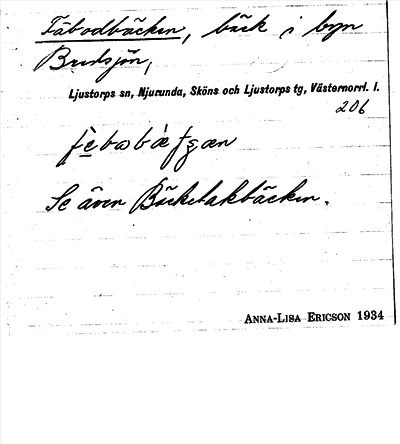 Fäbodbäcken, bäck i byn
Bredsjön,
Ljustorps sn, Njurunda, Sköns och Ljustorps tg, Västernorrl. l.
206
Se även Bäcketäktbäcken.
ANNA-LISA ERICSON 1934